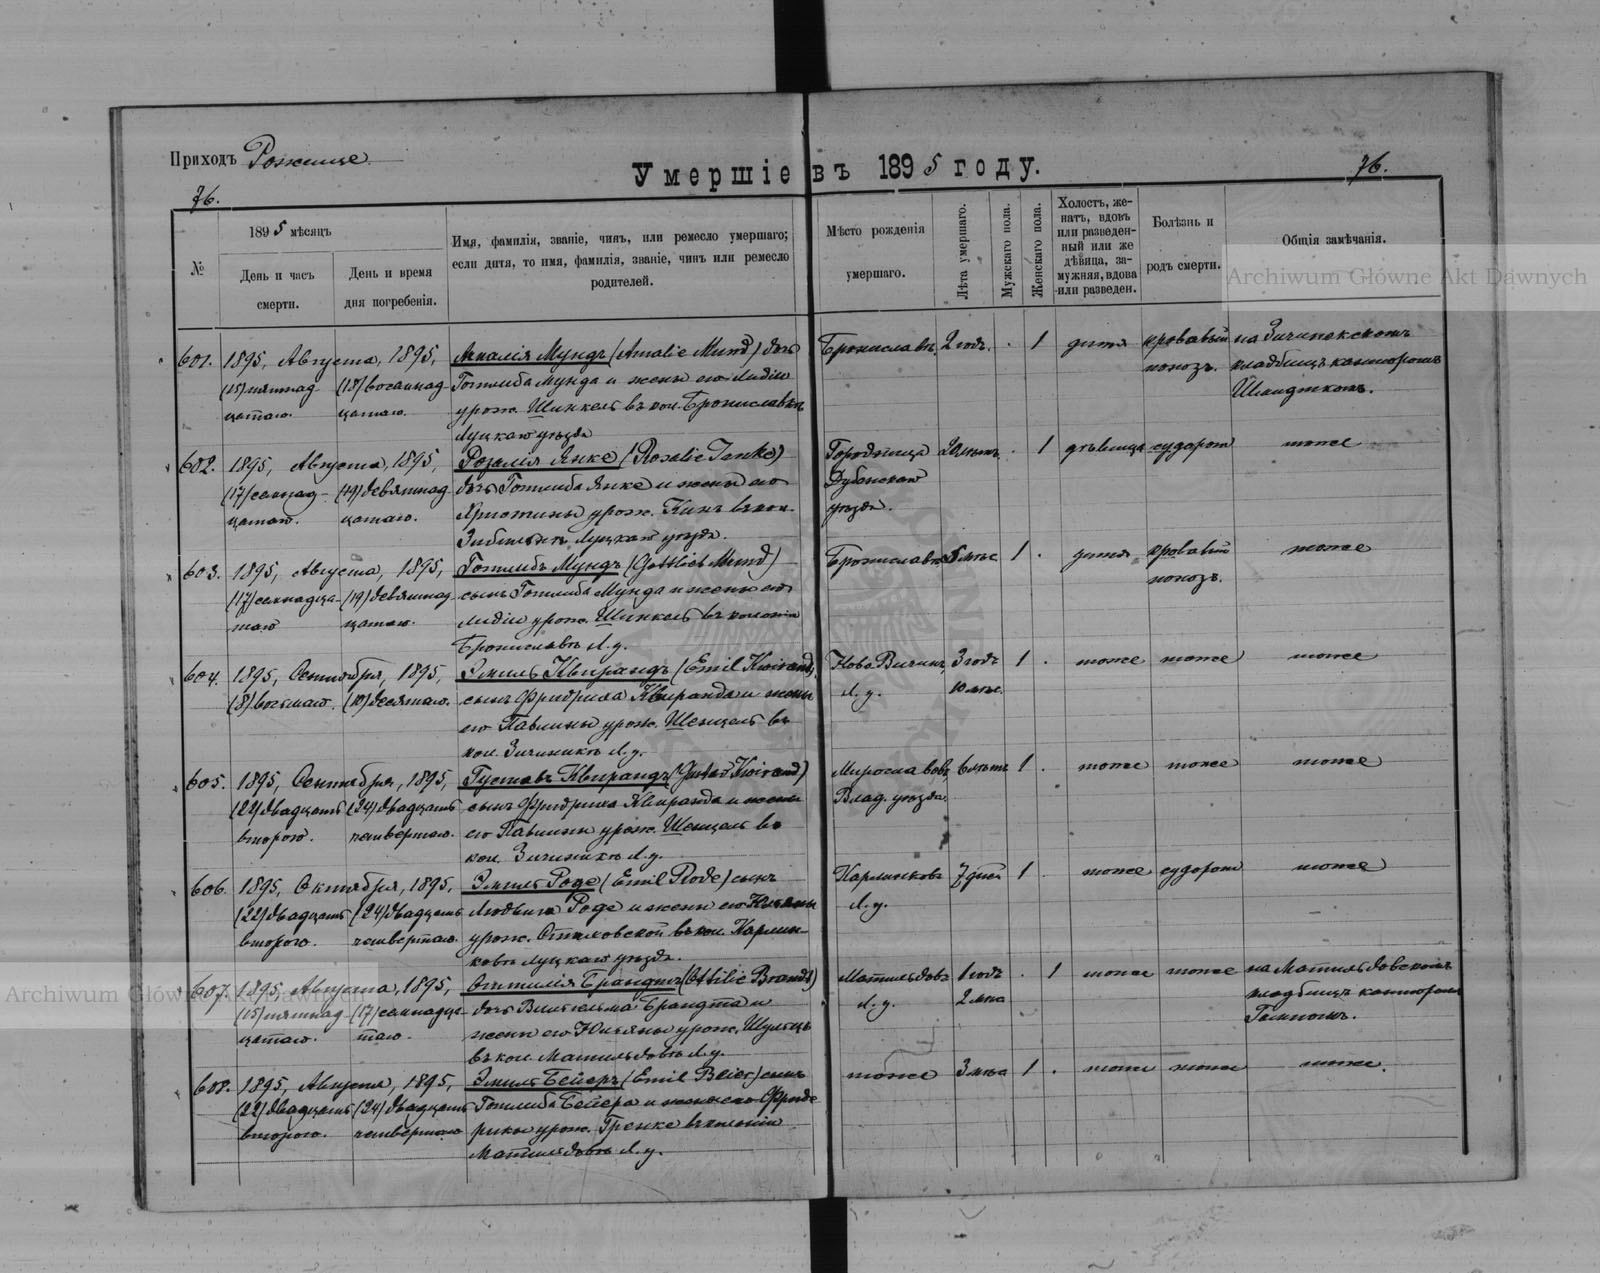 Приходъ Рожище
Умершіе въ 1895 году.
76.
76.
№
1895 мѣсяцъ
День и часъ смерти.
День и время дня погребенія.
Имя, фамилія, званіе, чинъ, или ремесло умершаго; если дитя, то имя, фамилія, званіе, чинъ или ремесло родителей.
Мѣсто рожденія умершаго.
Лѣта умершаго.
Мужскаго пола.
Женскаго пола.
Холостъ, женатъ, вдовъ или разведенный или же дѣвица, замужняя, вдова или разведен.
Болѣзнь и родъ смерти.
Общія замѣчанія.
Archiwum Główne Akt Dawnych
601. 1895, Августа, 1895, Амалія Мундъ (Amalie Mund) дочь Брониславъ 2 год. . 1 дитя кровавый на
(15) пятнад- (18) восемнад- Готлиба Мунда и жены его Лидіи поносъ. кладбищѣ канторомъ
цатаго. цатаго. урож. Шинкель въ кол. Брониславкѣ
Луцкаго уѣзда
602. 1895, Августа, 1895, Розалія Янке (Rosalie Janke) Городница 20 лѣтъ . 1 дѣвица судороги тоже
(17) семнад- (19) девятнад- дочь Готлиба Янке и жены его Дубенскаго
цатаго. цатаго. Христины урож. Кинъ въ кол. уѣзда.
Луцкаго уѣзда.
603. 1895, Августа, 1895, Готлибъ Мундъ (Gottlieb Mund) мѣс 1 . дитя кровавый тоже
(17) семнадца- (19) девятнад- сынъ Готлиба Мунда и жены его поносъ.
таго цатаго. Лидіи урож. Шинкель въ колоніи
Брониславкѣ Л. у.
604. 1895, Сентября, 1895, Эмиль Квирандъ (Emil Kwirand) 3 год 1 . тоже тоже тоже
(8) восьмаго. (10) десятаго. сынъ Фридриха Квиранда и жены Л. у. 10 мѣс.
его Павлины урож. Шенцель въ
кол. Л. у.
605. 1895, Сентября, 1895, Густавъ Квирандъ (Gustav Kwirand) Мирославовъ 6 лѣтъ 1 . тоже тоже тоже
(22) двадцать (24) двадцать сынъ Фридриха Квиранда и жены Влад. уѣзда.
второго. четвертаго. его Павлины урож. Шенцель въ
кол. Л. у.
606. 1895, Октября, 1895, Эмиль Роде (Emil Rode) сынъ 7 дней 1 . тоже судороги тоже
(22) двадцать (24) двадцать Людвига Роде и жены его Л. у.
второго. четвертаго. урож. въ кол.
Луцкаго уѣзда.
607. 1895, Августа, 1895, Оттилія Брандтъ (Ottilie Brandt) Матильдовъ 1 годъ . 1 тоже тоже на Матильдовскомъ
(15) пятнад- (17) семнадца- дочь Вильгельма Брандта и Л. у. 2 мѣс кладбищѣ канторомъ
цатаго. таго. жены его Юльяны урож. Шульцъ
въ кол. Матильдовкѣ Л. у.
608. 1895, Августа, 1895, Эмиль Бейеръ (Emil Beier) сынъ тоже 3 мѣс 1 . тоже тоже тоже.
(22) двадцать (24) двадцать Готлиба Бейера и жены его Фриде-
второго. четвертаго рики урож. Гренке въ колоніи
Матильдовкѣ Л. у.
Archiwum Główne Akt Dawnych